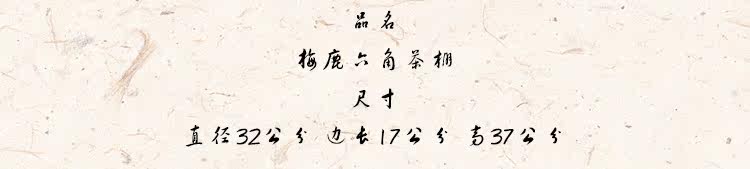 品名
梅鹿六角茶棚
尺寸
直径32公分 边长17公分 高37公分